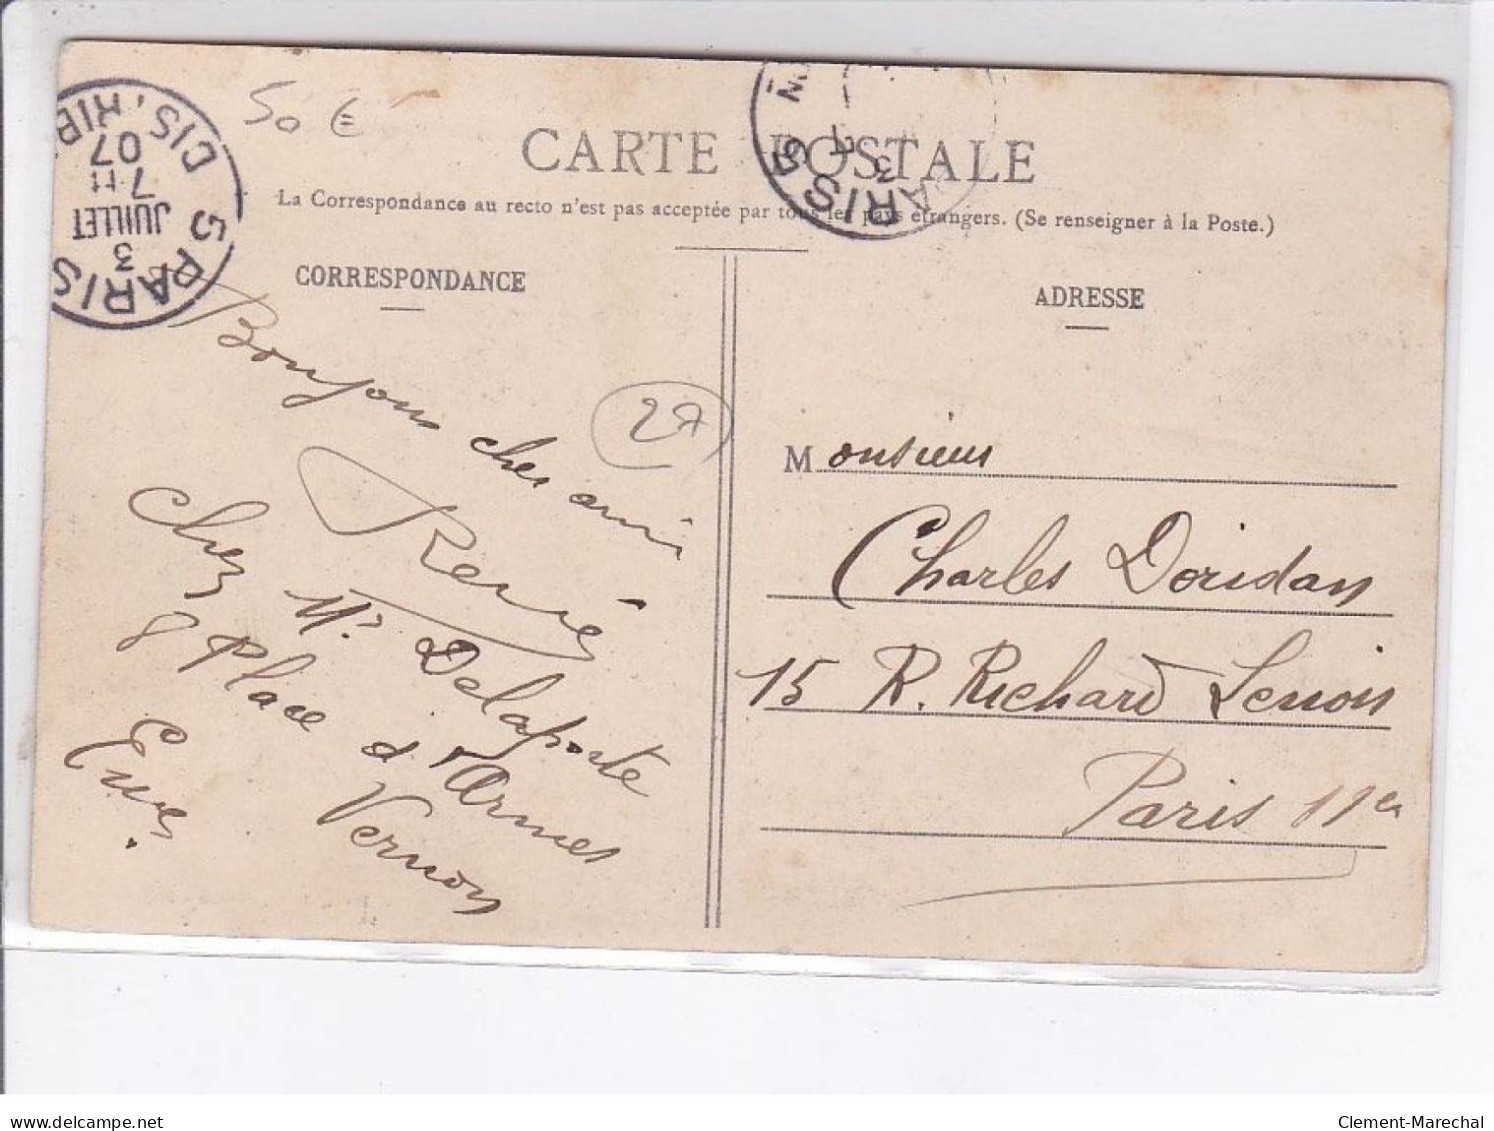 50 €
PARIS 5 DISTRIB
7 H
3
JUILLET
07
PARIS
3
CARTE POSTALE
La Correspondance au recto n'est pas acceptée par tous les pays étrangers. (Se renseigner à la Poste.)
CORRESPONDANCE
Bonjour cher ami
René
Chez Mr Delaporte
8 Place d'Armes
Vernon
Eure.
27
ADRESSE
Monsieur
Charles Doridan
15 R. Richard Lenoir
Paris 11er
delcampe.net
Clement-Marechal